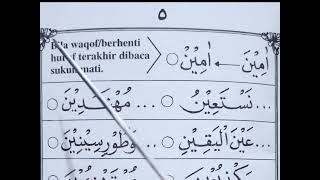 ٥
Bila waqof/berhenti
huruf terakhir dibaca
sukun/mati.
اٰمِيْنَ ← اٰمِيْنْ
...نَسْتَعِيْنُ ... مُهْتَدِيْنَ
...عَيْنَ الْيَقِيْنِ ...وَطُوْرِسِيْنِيْنَ